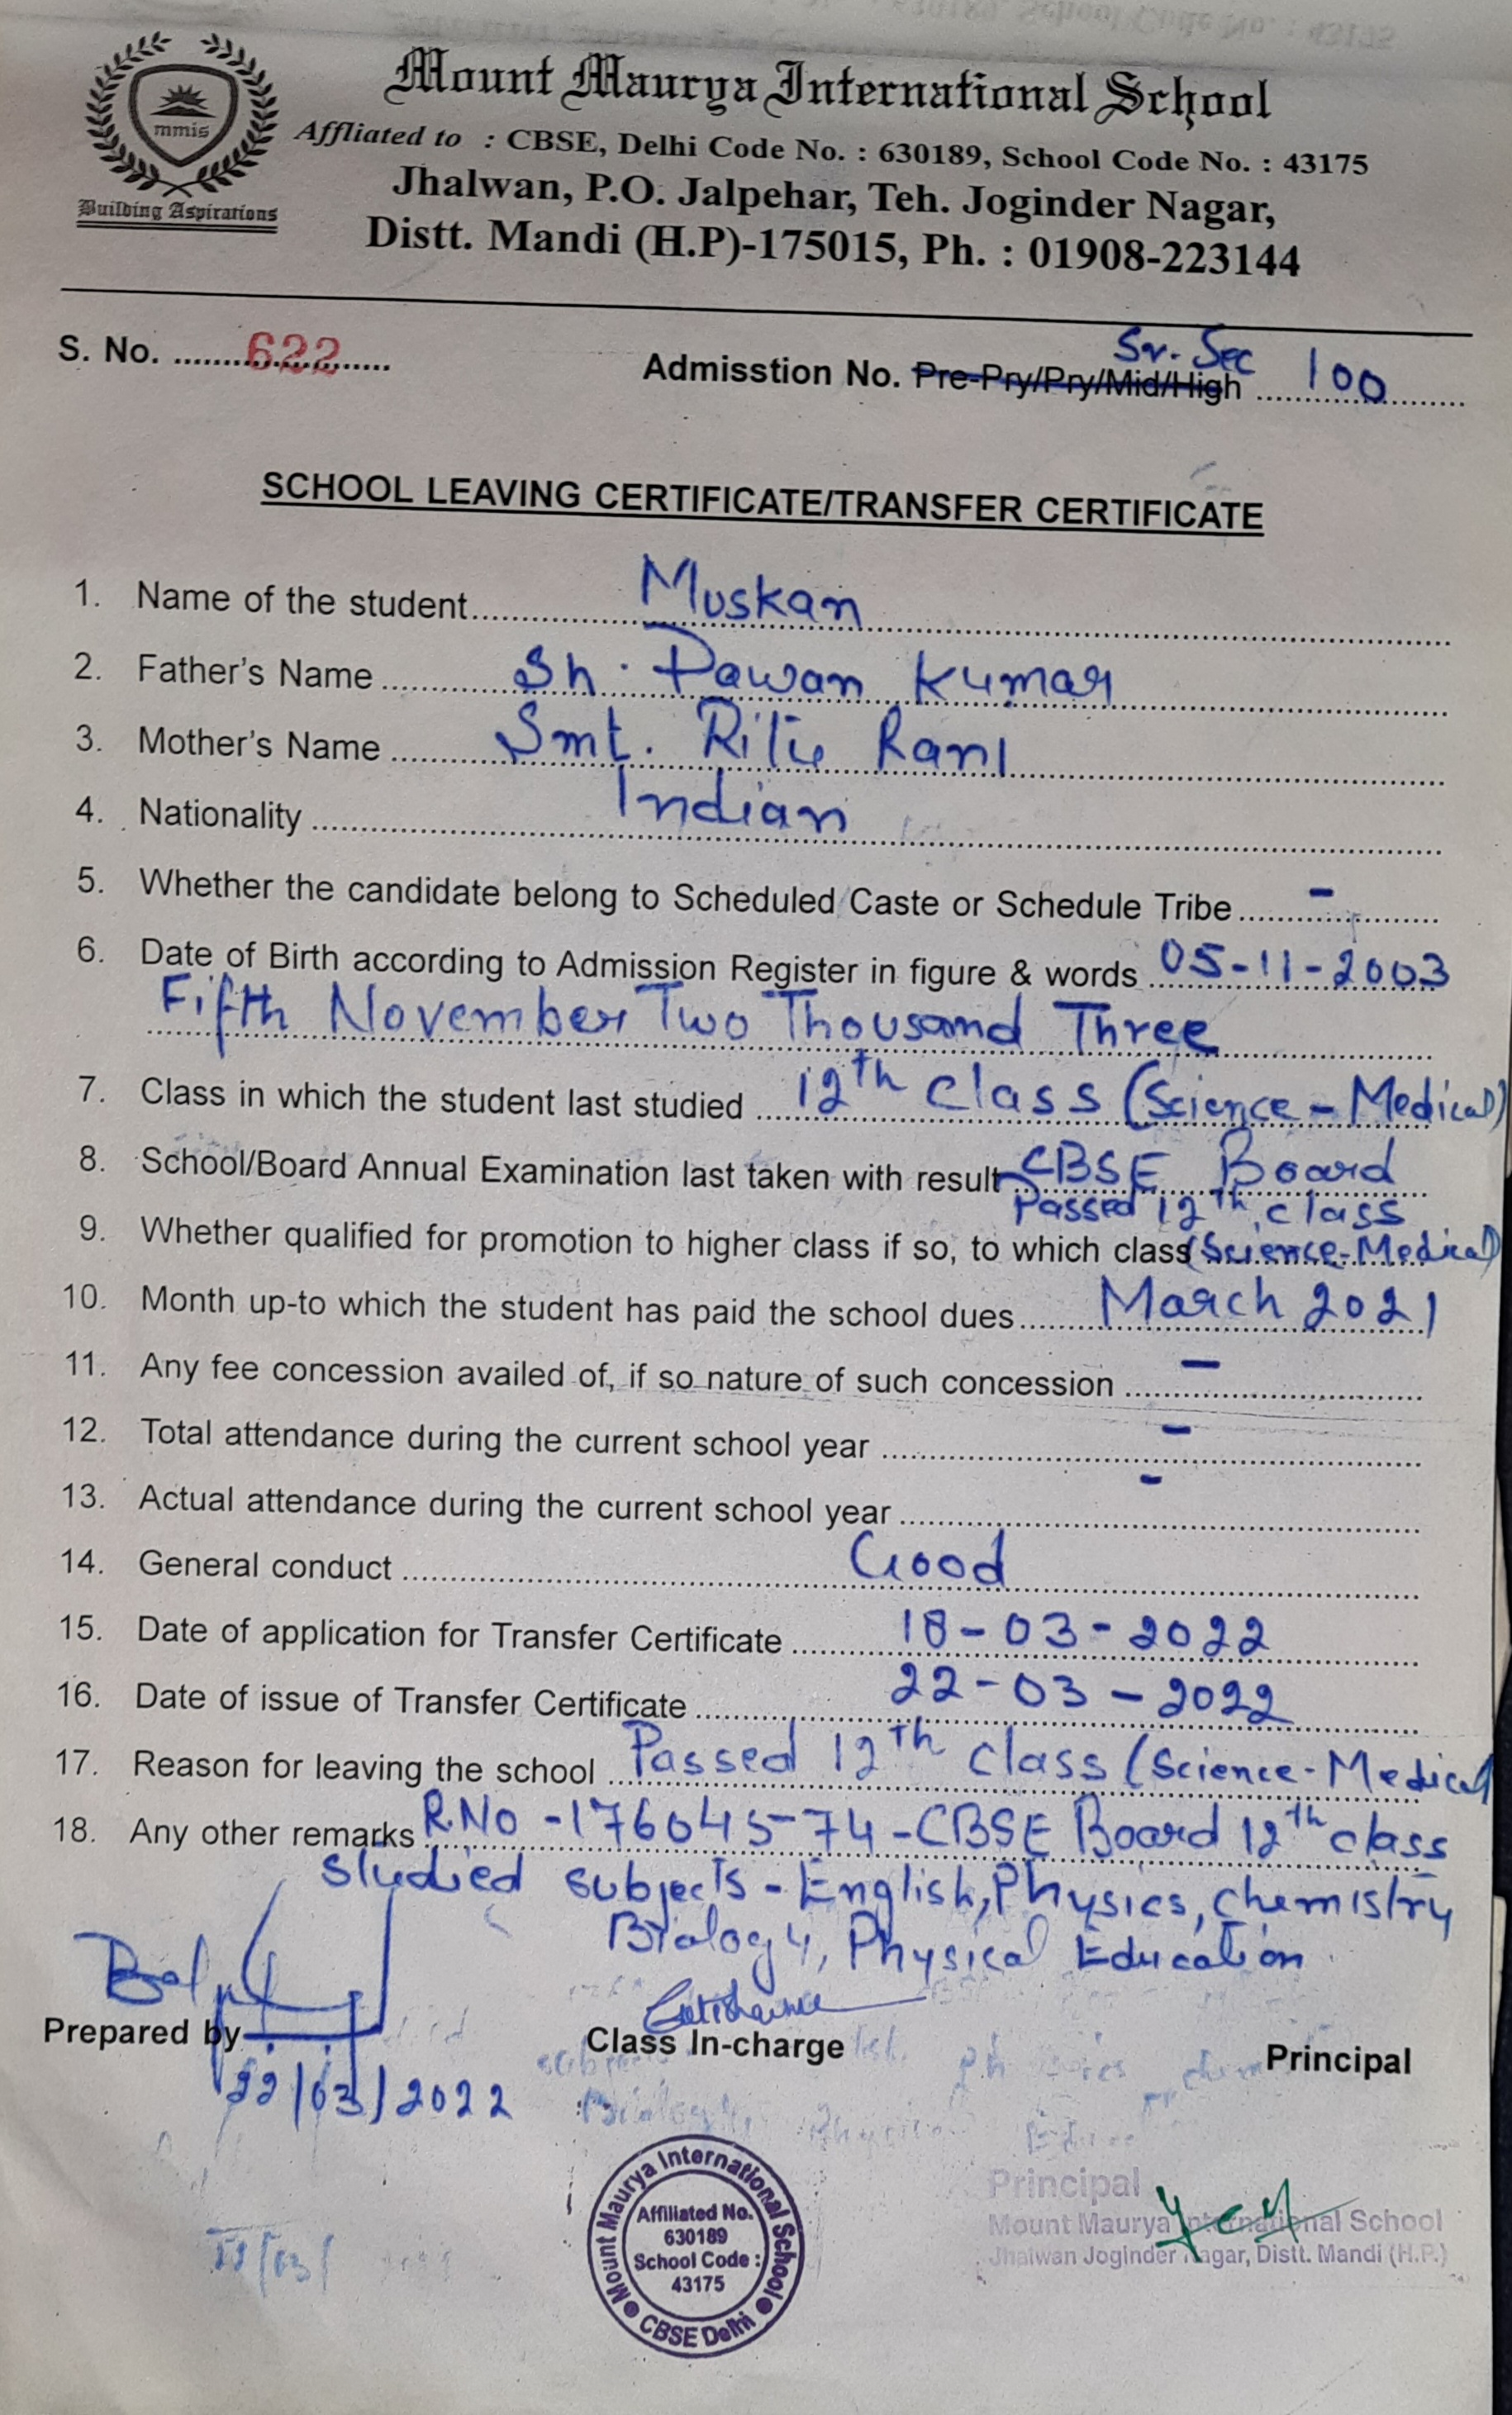 mmis
Building Aspirations
Mount Maurya International School
Affliated to : CBSE, Delhi Code No. : 630189, School Code No. : 43175
Jhalwan, P.O. Jalpehar, Teh. Joginder Nagar,
Distt. Mandi (H.P)-175015, Ph. : 01908-223144
S. No. 622
Sr. Sec
Admisstion No. Pre-Pry/Pry/Mid/High 100
SCHOOL LEAVING CERTIFICATE/TRANSFER CERTIFICATE
1. Name of the student Muskan
2. Father's Name Sh. Pawan Kumar
3. Mother's Name Smt. Rani
4. Nationality Indian
5. Whether the candidate belong to Scheduled Caste or Schedule Tribe -
6. Date of Birth according to Admission Register in figure & words 05-11-2003
Fifth November Two Thousand Three
7. Class in which the student last studied 12th Class (Science-Medical)
8. School/Board Annual Examination last taken with result CBSE Board
Passed 12th class
9. Whether qualified for promotion to higher class if so, to which class (Science-Medical)
10. Month up-to which the student has paid the school dues March 2021
11. Any fee concession availed of, if so nature of such concession -
12. Total attendance during the current school year -
13. Actual attendance during the current school year -
14. General conduct Good
15. Date of application for Transfer Certificate 18-03-2022
16. Date of issue of Transfer Certificate 22-03-2022
17. Reason for leaving the school Passed 12th class (Science-Medical
18. Any other remarks R.No -176045-74-CBSE Board 12th class
studied subjects - English, Physics, chemistry
Biology, Physical Education
Prepared by Class In-charge Principal
22/03/2022
Mount Maurya International School
Affiliated No.
630189
School Code :
43175
CBSE Delhi
Principal
Mount Maurya International School
Jhalwan Joginder Nagar, Distt. Mandi (H.P.)